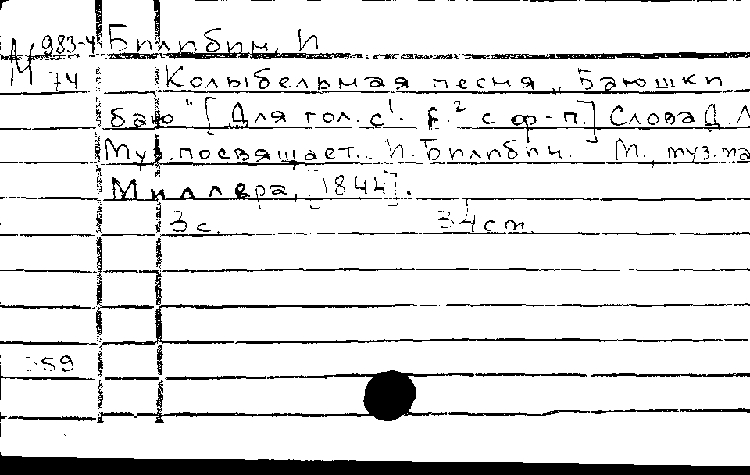 М 983-4 Билибин, И
74 Колыбельная песня „Баюшки
баю" [Для гол. с¹. f.² с ф-п.] Слова Д. Л
Муз. посвящает.. И. Билибин. М., муз. ма
Миллера, [1844].
3 с. 34 cm.
359